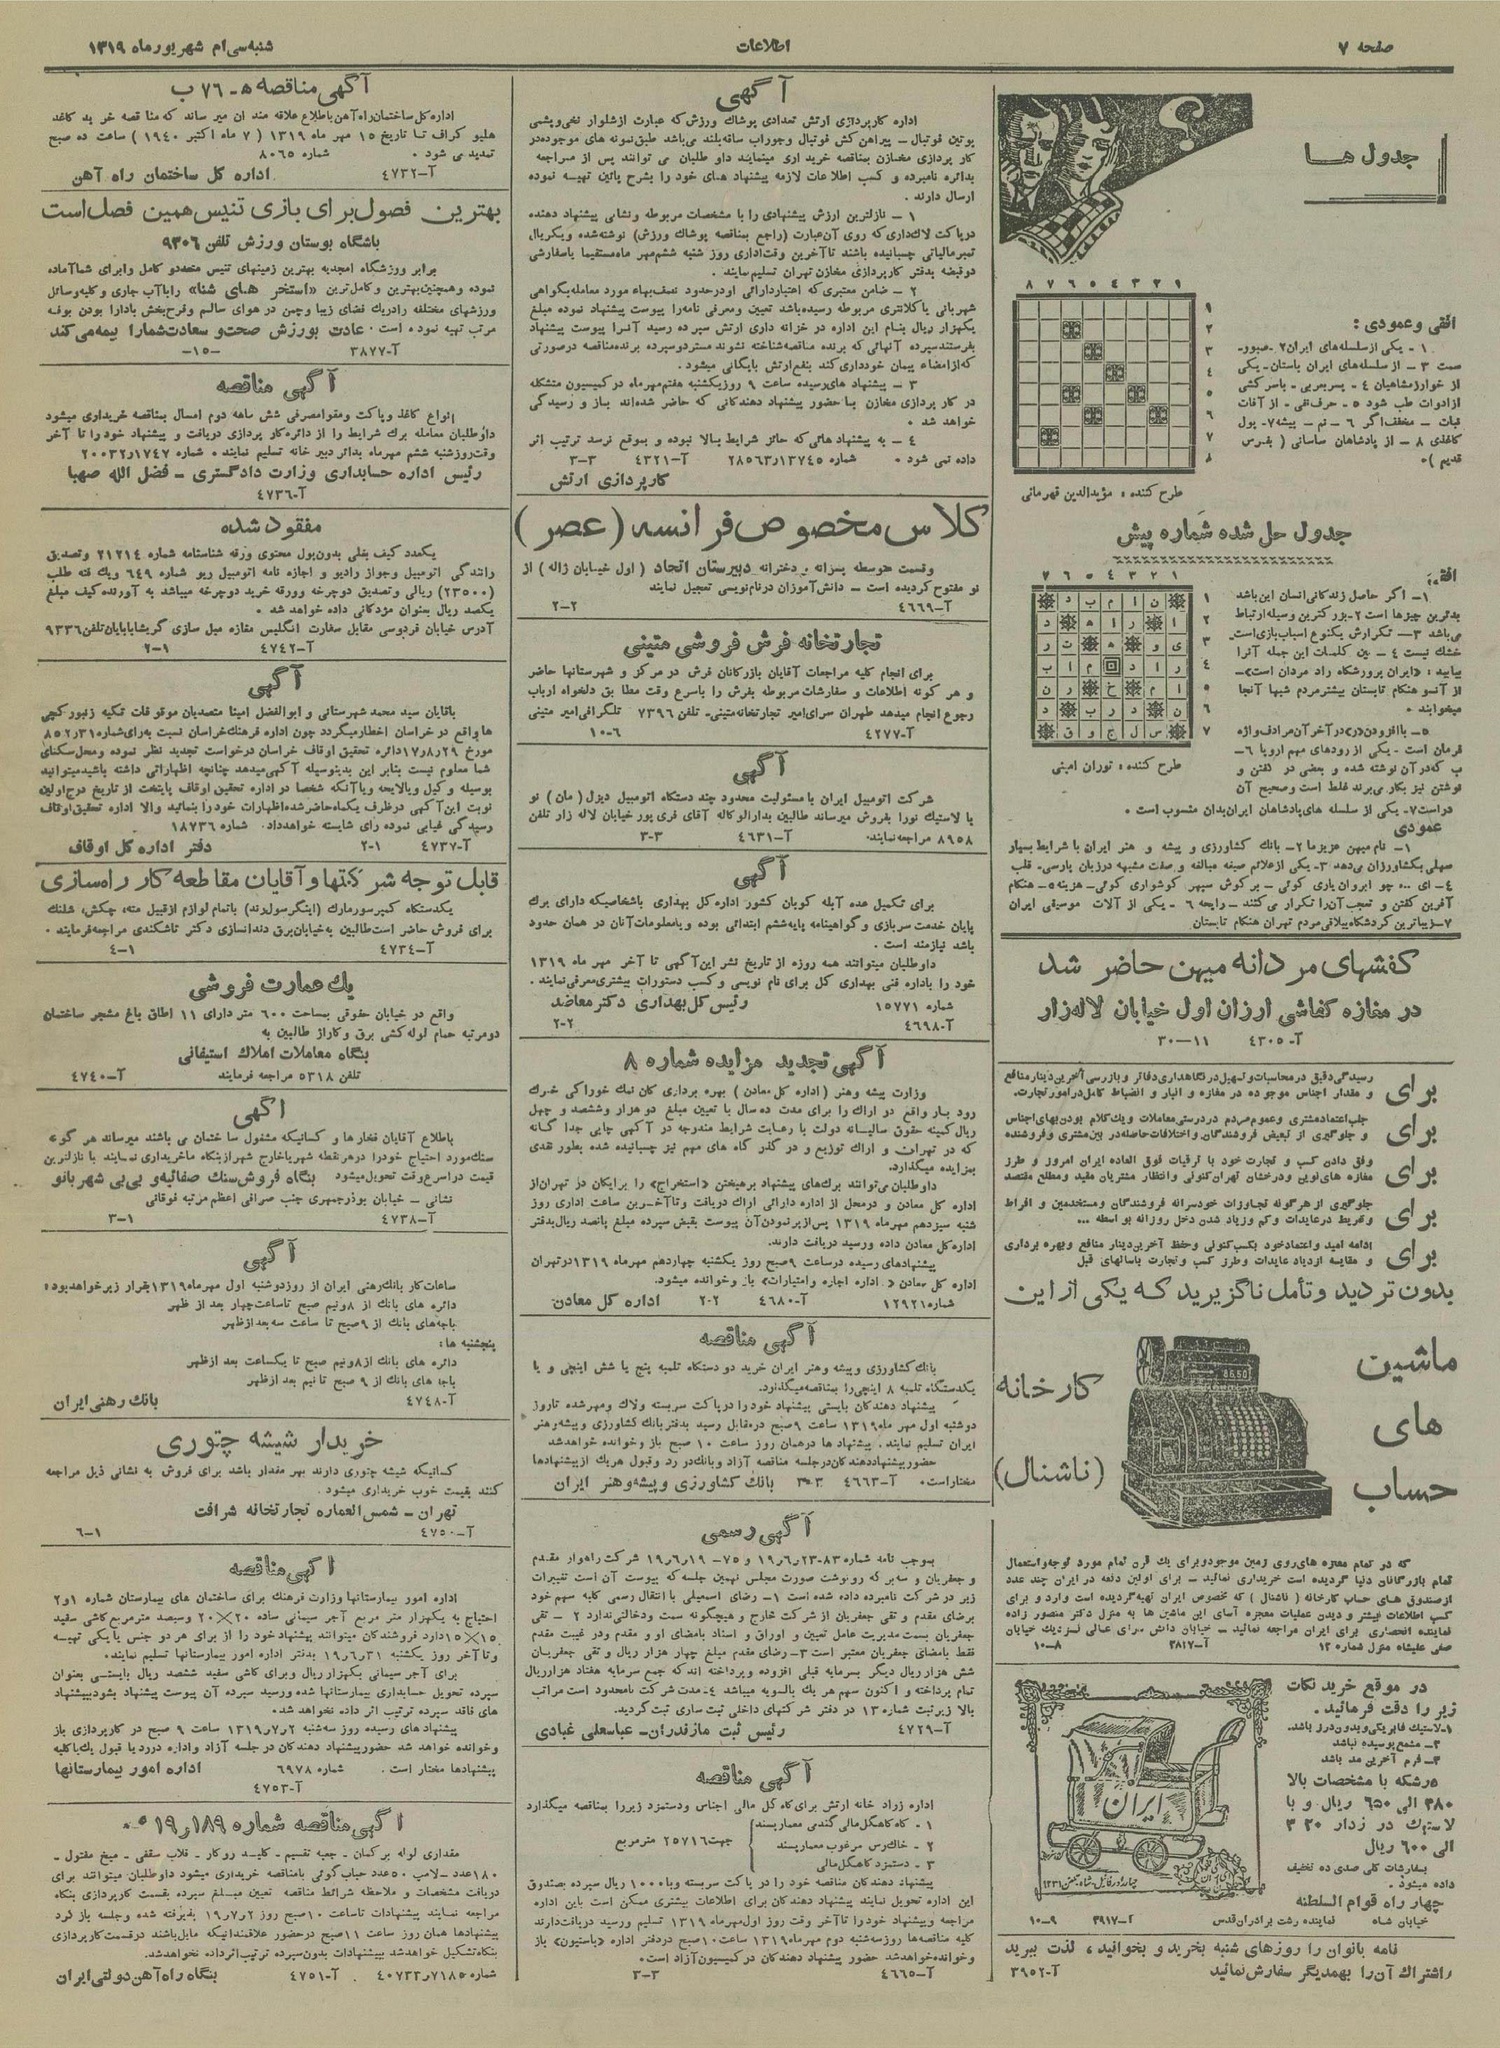 صفحه ۷
اطلاعات
شنبه سی‌ام شهریور ماه ۱۳۱۹
جدول ها
۱ ۲ ۳ ۴ ۵ ۶ ۷ ۸
افقی و عمودی :
۱ - یکی از سلسله های ایران ۲ - صبور -
سمت ۳ - از سلسله های ایران باستان - یکی
از خوارزمشاهیان ۴ - پسر عربی - باسر کشی
از ادوات طب شود ۵ - حرف نفی - از آفات
نبات - مخفف اگر ۶ - نم - پیشه ۷ - پول
کاغذی ۸ - از پادشاهان ساسانی ( بفرس
قدیم )۰
طرح کننده : مؤیدالدین قهرمانی
جدول حل شده شماره پیش
۱ ۲ ۳ ۴ ۵ ۶ ۷
۱- اگر حاصل زندگانی انسان این باشد
بدترین چیزها است ۲- بزرگترین وسیله ارتباط
می باشد ۳- تکرارش یکنوع اسباب بازی است -
خشک نیست ۴ - بین کلمات این جمله آنرا
بیابید : «ایران پرورشگاه راد مردان است» -
از آنسو هنگام تابستان بیشتر مردم شبها آنجا
میخوابند ۰
۵- با افزودن «ر» در آخر آن مرادف واژه
فرمان است - یکی از رودهای مهم اروپا ۶-
طرح کننده : توران امینی
نوشتن نیز بکار می برند غلط است وصحیح آن
در است ۷- یکی از سلسله های پادشاهان ایران بدان منسوب است ۰
عمودی
۱- نام میهن عزیز ما ۲- بانک کشاورزی و پیشه و هنر ایران با شرایط بسیار
سهلی بکشاورزان می دهد ۳- یکی از علائم صیغه مبالغه و صفت مشبهه در زبان پارسی - قلب
۴- ای ... چو ابروان یاری گوئی - بر گوش سپهر گوشواری گوئی - هزینه ۵- هنگام
آفرین گفتن و تعجب آن را تکرار می کنند - رایحه ۶ - یکی از آلات موسیقی ایران
۷- زیباترین گردشگاه ییلاقی مردم تهران هنگام تابستان
کفشهای مردانه میهن حاضر شد
در مغازه کفاشی ارزان اول خیابان لاله‌زار
آ- ۴۳۰۵ ۱۱-۳۰
برای رسیدگی دقیق در محاسبات و تسهیل در نگاهداری دفاتر و بازرسی آخرین دینار منافع
و مقدار اجناس موجوده در مغازه و انبار و انضباط کامل در امور تجارت.
برای جلب اعتماد مشتری و عموم مردم در درستی معاملات و یک کلام بودن بهای اجناس
و جلوگیری از تبعیض فروشندگان و اختلافات حاصله در بین مشتری و فروشنده
برای وفق دادن کسب و تجارت خود با ترقیات فوق العاده ایران امروز و طرز
مغازه های لوین و درخشان تهران کنونی و انتظار مشتریان مقید و مطلع مقتصد
برای جلوگیری از هرگونه تجاوزات خودسرانه فروشندگان و مستخدمین و افراط
و تفریط در عایدات و کم و زیاد شدن دخل روزانه بواسطه ...
برای ادامه امید و اعتماد خود بکسب کنونی و حفظ آخرین دینار منافع و بهره برداری
و مقایسه ازدیاد عایدات و طرز کسب و تجارت باسالهای قبل
بدون تردید و تأمل ناگزیرید که یکی از این
ماشین
های
حساب
کارخانه
(ناشنال)
که در تمام مغازه های روی زمین موجود و برای یک قرن تمام مورد توجه و استعمال
تمام بازرگانان دنیا گردیده است خریداری نمائید - برای اولین دفعه در ایران چند عدد
از صندوق های حساب کارخانه ( ناشنال ) که تخصوص ایران تهیه گردیده است وارد و برای
کسب اطلاعات بیشتر و دیدن عملیات معجزه آسای این ماشین ها به منزل دکتر منصور زاده
نماینده انحصاری برای ایران مراجعه نمائید - خیابان دانش سرای عالی نزدیک خیابان
صفی علیشاه منزل شماره ۱۲ آ-۳۸۱۷ ۸-۱۰
در موقع خرید نکات
زیر را دقت فرمائید .
۱- لاستیک فابریکی و بدون درز باشد.
۲- مشمع پوسیده نباشد
۳- فرم آخرین مد باشد
درشکه با مشخصات بالا
۳۸۰ الی ۶۵۰ ریال و با
لاستیک در زدار ۳۲۰
الی ۶۰۰ ریال
بسفارشات کلی صدی ده تخفیف
داده میشود .
چهار راه قوام السلطنه
خیابان شاه نماینده رشت برادران قدس آ-۳۹۱۷ ۹-۱۰
ایران
نامه بانوان را روزهای شنبه بخرید و بخوانید ، لذت ببرید
اشتراک آن را بهمدیگر سفارش نمائید آ-۳۹۵۲
آگهی
اداره کارپردازی ارتش تعدادی پوشاک ورزش که عبارت از شلوار نخی و پشمی
پوتین فوتبال - پیراهن کش فوتبال و جوراب ساقه بلند می باشد طبق نمونه های موجوده در
کار پردازی مخازن بمناقصه خریداری مینماید داو طلبان می توانند پس از مراجعه
بدائره نامبرده و کسب اطلاعات لازمه پیشنهاد های خود را بشرح پائین تهیه نموده
ارسال دارند .
۱ - نازلترین ارزش پیشنهادی را با مشخصات مربوطه و نشانی پیشنهاد دهنده
در پاکت لاک داری که روی آن عبارت (راجع بمناقصه پوشاک ورزش) نوشته شده و یکریال
تمبر مالیاتی چسبانیده باشند تا آخرین وقت اداری روز شنبه ششم مهر ماه مستقیما یا سفارشی
دو قبضه بدفتر کارپردازی مخازن تهران تسلیم نمایند .
۲ - ضامن معتبری که اعتبار دارائی او در حدود نصف بهاء مورد معامله بگواهی
شهربانی یا کلانتری مربوطه رسیده باشد تعیین و معرفی نامه را پیوست پیشنهاد نموده مبلغ
یکهزار ریال بنام این اداره در خزانه داری ارتش سپرده رسید آنرا پیوست پیشنهاد
بفرستند سپرده آنهائی که برنده مناقصه شناخته نشوند مسترد و سپرده برنده مناقصه در صورتی
که از امضاء پیمان خودداری کند بنفع ارتش بایگانی میشود .
۳ - پیشنهاد های رسیده ساعت ۹ روز یکشنبه هفتم مهر ماه در کمیسیون متشکله
در کار پردازی مخازن با حضور پیشنهاد دهندگانی که حاضر شده اند باز و رسیدگی
خواهد شد ۰
۴ - به پیشنهاد هائی که حائز شرایط بالا نبوده و بموقع نرسد ترتیب اثر
داده نمی شود ۰ شماره ۲۸۵۶۳٫۱۳۷۴۵ آ-۴۳۲۱ ۳-۳
کارپردازی ارتش
کلاس مخصوص فرانسه (عصر)
وقسمت متوسطه پسرانه و دخترانه دبیرستان اتحاد ( اول خیابان ژاله ) از
نو مفتوح گردیده است - دانش آموزان در نام نویسی تعجیل نمایند
آ-۴۶۶۹ ۲-۲
تجارتخانه فرش فروشی متینی
برای انجام کلیه مراجعات آقایان بازرگانان فرش در مرکز و شهرستانها حاضر
و هر گونه اطلاعات و سفارشات مربوطه بفرش را باسرع وقت مطابق دلخواه ارباب
رجوع انجام میدهد طهران سرای امیر تجارتخانه متینی - تلفن ۷۳۹۶ تلگرافی امیر متینی
آ-۴۲۷۷ ۶-۱۰
آگهی
شرکت اتومبیل ایران با مسئولیت محدود چند دستگاه اتومبیل دیزل ( مان ) نو
با لاستیک نو را بفروش میرساند طالبین بدارالوکاله آقای فری پور خیابان لاله زار تلفن
۸۹۵۸ مراجعه نمایند۰ آ-۴۶۳۱ ۳-۳
آگهی
برای تکمیل عده آبله کوبان کشور اداره کل بهداری باشخاصیکه دارای برک
پایان خدمت سربازی و گواهینامه پایه ششم ابتدائی بوده و یا معلومات آنان در همان حدود
باشد نیازمند است ۰
داوطلبان میتوانند همه روزه از تاریخ نشر این آگهی تا آخر مهر ماه ۱۳۱۹
خود را باداره فنی بهداری کل برای نام نویسی و کسب دستورات بیشتری معرفی نمایند .
شماره ۱۵۷۷۱ رئیس کل بهداری دکتر معاضد
آ-۴۶۹۸ ۲-۲
آگهی تجدید مزایده شماره ۸
وزارت پیشه و هنر ( اداره کل معادن ) بهره برداری کان نمک خوراکی خرک
رود بار واقع در اراک را برای مدت ده سال با تعیین مبلغ دو هزار و ششصد و چهل
ریال کمینه حقوق سالیانه دولت با رعایت شرایط مندرجه در آگهی چاپی جدا گانه
که در تهران و اراک توزیع و در گذر گاه های مهم نیز چسبانیده شده بطور نقدی
بمزایده میگذارد.
داوطلبان می توانند برک های پیشنهاد بر هیختن «استخراج» را برایگان در تهران از
اداره کل معادن و در محل از اداره دارائی اراک دریافت و تا آخرین ساعت اداری روز
شنبه سیزدهم مهر ماه ۱۳۱۹ پس از پر نمودن آن پیوست بقبض سپرده مبلغ پانصد ریال بدفتر
اداره کل معادن داده و رسید دریافت دارند.
پیشنهادهای رسیده در ساعت ۹ صبح روز یکشنبه چهاردهم مهر ماه ۱۳۱۹ در تهران
اداره کل معادن « اداره اجاره و امتیازات» باز و خوانده میشود.
شماره ۱۲۹۲۱ آ-۴۶۸۰ ۲-۲ اداره کل معادن
آگهی مناقصه
بانک کشاورزی و پیشه و هنر ایران خرید دو دستگاه تلمبه پنج یا شش اینچی و یا
یکدستگاه تلمبه ۸ اینچی را بمناقصه میگذارد.
پیشنهاد دهندگان بایستی پیشنهاد خود را در پاکت سربسته و لاک و مهر شده تا روز
دوشنبه اول مهر ماه ۱۳۱۹ ساعت ۹ صبح در مقابل رسید بدفتر بانک کشاورزی و پیشه و هنر
ایران تسلیم نمایند. پیشنهاد ها در همان روز ساعت ۱۰ صبح باز و خوانده خواهد شد
حضور پیشنهاد دهندگان در جلسه مناقصه آزاد و بانک در رد و قبول هر یک از پیشنهادها
مختار است۰ آ-۴۶۶۳ ۳-۳ بانک کشاورزی و پیشه و هنر ایران
آگهی رسمی
بموجب نامه شماره ۸۳-۱۹٫۶٫۲۳ و ۷۵- ۱۹٫۶٫۱۹ شرکت راهوار مقدم
و جعفریان و سه بر که رونوشت صورت مجلس نهمین جلسه که پیوست آن است تغییرات
زیر در شرکت نامبرده داده شده است ۱ - رضای اسمعیلی با انتقال رسمی کلیه سهم خود
برضای مقدم و تقی جعفریان از شرکت خارج و هیچگونه سمت و دخالتی ندارد ۲ - تقی
جعفریان بسمت مدیریت عامل تعیین و اوراق و اسناد بامضای او و مقدم و در غیبت مقدم
فقط بامضای جعفریان معتبر است ۳- رضای مقدم مبلغ چهار هزار ریال و تقی جعفریان
شش هزار ریال دیگر بسرمایه قبلی افزوده و پرداخته اند که جمع سرمایه هفتاد هزار ریال
تمام پرداخته و اکنون سهم هر یک بالسویه میباشد ۴- مدت شرکت نامحدود است مراتب
بالا زیر ثبت شماره ۱۳ در دفتر شرکتهای داخلی ثبت ساری ثبت گردید.
آ-۴۷۲۹ رئیس ثبت مازندران - عباسعلی غبادی
آگهی مناقصه
اداره زراد خانه ارتش برای کاه گل مالی اجناس و دستمزد زیر را بمناقصه میگذارد
۱ - کاه کاهگل مالی گندمی معمار پسند
۲ - خاک رس مرغوب معمار پسند
۳ - دستمزد کاهگل مالی
جهت ۲۵۷۱۶ متر مربع
پیشنهاد دهندگان مناقصه خود را در پاکت سربسته و با ۱۰۰۰ ریال سپرده بصندوق
این اداره تحویل نمایند پیشنهاد دهندگان برای اطلاعات بیشتری ممکن است باین اداره
مراجعه و پیشنهاد خود را تا آخر وقت روز اول مهر ماه ۱۳۱۹ تسلیم و رسید دریافت دارند
کلیه مناقصه ها روز سه شنبه دوم مهر ماه ۱۳۱۹ ساعت ۱۰ صبح در دفتر اداره «باستیون» باز
و خوانده خواهد شد حضور پیشنهاد دهندگان در کمیسیون آزاد است۰
آ-۴۶۶۵ ۳-۳
آگهی مناقصه ه- ۷۶ ب
اداره کل ساختمان راه آهن باطلاع علاقه مندان میرساند که مناقصه خرید کاغذ
هلیو گراف تا تاریخ ۱۵ مهر ماه ۱۳۱۹ ( ۷ ماه اکتبر ۱۹۴۰ ) ساعت ده صبح
تمدید می شود ۰ شماره ۸۰۶۵
آ-۴۷۳۲ اداره کل ساختمان راه آهن
بهترین فصول برای بازی تنیس همین فصل است
باشگاه بوستان ورزش تلفن ۹۳۰۶
برابر ورزشگاه امجدیه بهترین زمینهای تنیس متعدد و کامل را برای شما آماده
نموده و همچنین بهترین و کامل ترین «استخر های شنا» را با آب جاری و کلیه وسائل
ورزشهای مختلفه را در یک فضای زیبا و چمن در هوای سالم و فرح بخش با دارا بودن بوفه
مرتب تهیه نموده است ۰ عادت بورزش صحت و سعادت شما را بیمه می کند
آ-۳۸۷۷ -۱۵-
آگهی مناقصه
انواع کاغذ و پاکت و مقوا مصرفی شش ماهه دوم امسال بمناقصه خریداری میشود
داوطلبان معامله برک شرایط را از دائره کار پردازی دریافت و پیشنهاد خود را تا آخر
وقت روز شنبه ششم مهر ماه بدائر دبیر خانه تسلیم نمایند ۰ شماره ۲۰۰۳۲٫۱۷۴۷
رئیس اداره حسابداری وزارت دادگستری - فضل الله صهبا
آ-۴۷۳۶
مفقود شده
یکعدد کیف بغلی بدون پول محتوی ورقه شناسنامه شماره ۲۱۲۱۴ و تصدیق
رانندگی اتومبیل و جواز رادیو و اجازه نامه اتومبیل ریو شماره ۶۴۹ و یک فته طلب
(۲۳۵۰۰) ریالی و تصدیق دوچرخه و ورقه خرید دوچرخه میباشد به آورنده کیف مبلغ
یکصد ریال بعنوان مژدگانی داده خواهد شد ۰
آدرس خیابان فردوسی مقابل سفارت انگلیس مغازه مبل سازی گریشا بابایان تلفن ۹۳۳۶
آ-۴۷۴۲ ۱-۲
آگهی
باقایان سید محمد شهرستانی و ابوالفضل امینا متصدیان موقوفات تکیه زنبورکچی
ها واقع در خراسان اخطار میگردد چون اداره فرهنگ خراسان نسبت به رای شماره ۸۵۲٫۳۱
مورخ ۱۷٫۸٫۲۹ دائره تحقیق اوقاف خراسان درخواست تجدید نظر نموده و محل سکنای
شما معلوم نیست بنابر این بدینوسیله آگهی میدهد چنانچه اظهاراتی داشته باشید میتوانید
بوسیله وکیل و یا لایحه و یا آنکه شخصا در اداره تحقیق اوقاف پایتخت از تاریخ درج اولین
نوبت این آگهی در ظرف یکماه حاضر شده اظهارات خود را بنمائید والا اداره تحقیق اوقاف
رسیدگی غیابی نموده رای شایسته خواهد داد. شماره ۱۸۷۳۶
آ-۴۷۳۷ ۱-۲ دفتر اداره کل اوقاف
قابل توجه شرکتها و آقایان مقاطعه کار راه سازی
یکدستگاه کمپرسور مارک (اینگرسولرند) با تمام لوازم از قبیل مته، چکش، شلنگ
برای فروش حاضر است طالبین به خیابان برق دندانسازی دکتر تاشکندی مراجعه فرمایند ۰
آ-۴۷۳۴ ۱-۴
یک عمارت فروشی
واقع در خیابان حقوقی بمساحت ۶۰۰ متر دارای ۱۱ اطاق باغ مشجر ساختمان
دو مرتبه حمام لوله کشی برق و گاراژ طالبین به
بنگاه معاملات املاک استیفانی
تلفن ۵۳۱۸ مراجعه فرمایند آ-۴۷۴۰
آگهی
باطلاع آقایان فخارها و کسانیکه مشغول ساختمان می باشند میرساند هر گونه
سنک مورد احتیاج خود را در هر نقطه شهر یا خارج شهر از بنگاه ما خریداری نمایند با نازلترین
قیمت در اسرع وقت تحویل میشود بنگاه فروش سنک صفائیه و بی بی شهر بانو
نشانی - خیابان بوذرجمهری جنب صرافی اعظم مرتبه فوقانی
آ-۴۷۳۸ ۱-۳
آگهی
ساعات کار بانک رهنی ایران از روز دوشنبه اول مهر ماه ۱۳۱۹ بقرار زیر خواهد بود:
دائره های بانک از ۸ و نیم صبح تا ساعت چهار بعد از ظهر
باجه های بانک از ۹ صبح تا ساعت سه بعد از ظهر
پنجشنبه ها :
دائره های بانک از ۸ و نیم صبح تا یکساعت بعد از ظهر
باجه های بانک از ۹ صبح تا نیم بعد از ظهر
آ-۴۷۴۸ بانک رهنی ایران
خریدار شیشه چتوری
کسانیکه شیشه چتوری دارند بهر مقدار باشد برای فروش به نشانی ذیل مراجعه
کنند بقیمت خوب خریداری میشود .
تهران - شمس العماره تجارتخانه شرافت
آ-۴۷۵۰ ۱-۶
آگهی مناقصه
اداره امور بیمارستانها وزارت فرهنک برای ساختمان های بیمارستان شماره ۱ و ۲
احتیاج به یکهزار متر مربع آجر سیمانی ساده ۲۰×۲۰ و سیصد متر مربع کاشی سفید
۱۵×۱۵ دارد فروشندگان میتوانند پیشنهاد خود را از برای هر دو جنس یا یکی تهیه
و تا آخر روز یکشنبه ۱۹٫۶٫۳۱ بدفتر اداره امور بیمارستانها تسلیم نمایند.
برای آجر سیمانی یکهزار ریال و برای کاشی سفید ششصد ریال بایستی بعنوان
سپرده تحویل حسابداری بیمارستانها شده و رسید سپرده آن پیوست پیشنهاد بشود بپیشنهاد
های فاقد سپرده ترتیب اثر داده نخواهد شد.
پیشنهاد های رسیده روز سه شنبه ۱۳۱۹٫۷٫۲ ساعت ۹ صبح در کارپردازی باز
و خوانده خواهد شد حضور پیشنهاد دهندگان در جلسه آزاد و اداره در رد یا قبول یک یا کلیه
پیشنهادها مختار است . شماره ۶۹۷۸ اداره امور بیمارستانها
آ-۴۷۵۳
آگهی مناقصه شماره ۱۹٫۱۸۹
مقداری لوله برگمان - جعبه تقسیم - کلید رو کار - قلاب سقفی - میخ مفتول -
۱۸۰ عدد - لامپ ۵۰ عدد حباب گوئی بامناقصه خریداری میشود داوطلبان میتوانند برای
دریافت مشخصات و ملاحظه شرائط مناقصه تعیین مبلغ سپرده بقسمت کارپردازی بنگاه
مراجعه نمایند پیشنهادات تا ساعت ۱۰ صبح روز ۱۹٫۷٫۲ پذیرفته شده و جلسه باز کرد
پیشنهادها همان روز ساعت ۱۱ صبح در حضور علاقمندانیکه مایل باشند در قسمت کارپردازی
بنگاه تشکیل خواهد شد بپیشنهادات بدون سپرده ترتیب اثر داده نخواهد شد.
شماره ۴۰۷۳۳٫۷۱۸۵ آ-۴۷۵۱ بنگاه راه آهن دولتی ایران